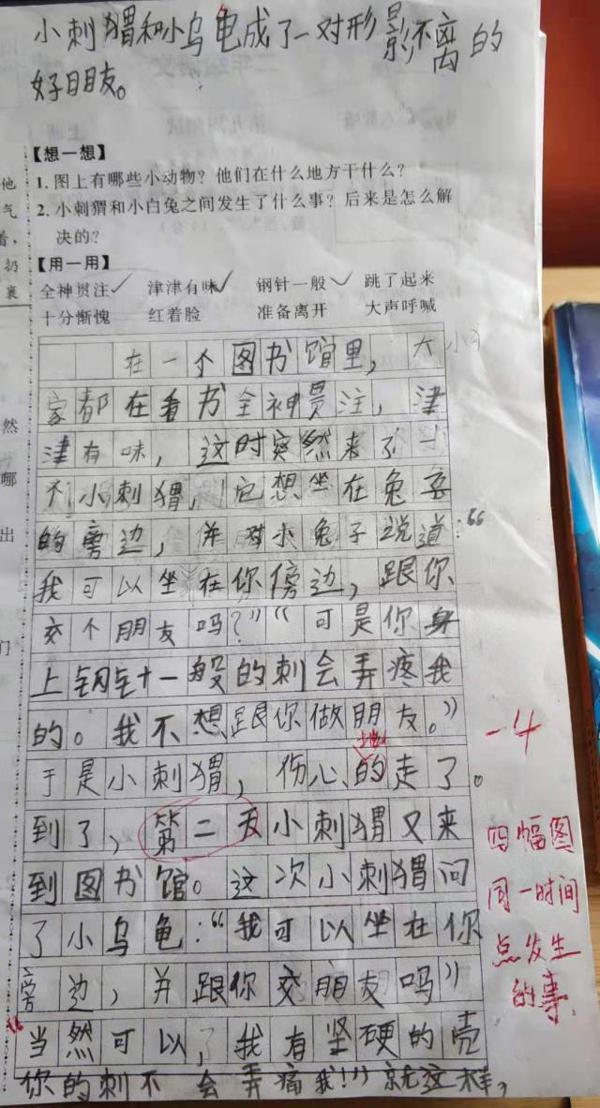 小刺猬和小乌龟成了一对形影不离的
好朋友。
【想一想】
他
1. 图上有哪些小动物？他们在什么地方干什么？
气
2. 小刺猬和小白兔之间发生了什么事？后来是怎么解
着，
决的？
扔
【用一用】
裹
全神贯注✓ 津津有味✓ 钢针一般✓ 跳了起来
十分惭愧 红着脸 准备离开 大声呼喊
在一个图书馆里，大
家都在看书全神贯注，津
然
津有味，这时突然来了一
哪
个小刺猬，它想坐在兔子
出
的旁边，并对小兔子说道：“
我可以坐在你傍边，跟你
交个朋友吗？”“可是你身
们
上钢针一般的刺会弄疼我
的。我不想跟你做朋友。”
-4
地
于是小刺猬，伤心的走了。
到了，第二天小刺猬又来
四幅图
到图书馆。这次小刺猬问
同一时间
了小乌龟：“我可以坐在你
点发生
旁边，并跟你交朋友吗”
的事
“当然可以，我有坚硬的壳
你的刺不会弄痛我！”就这样，